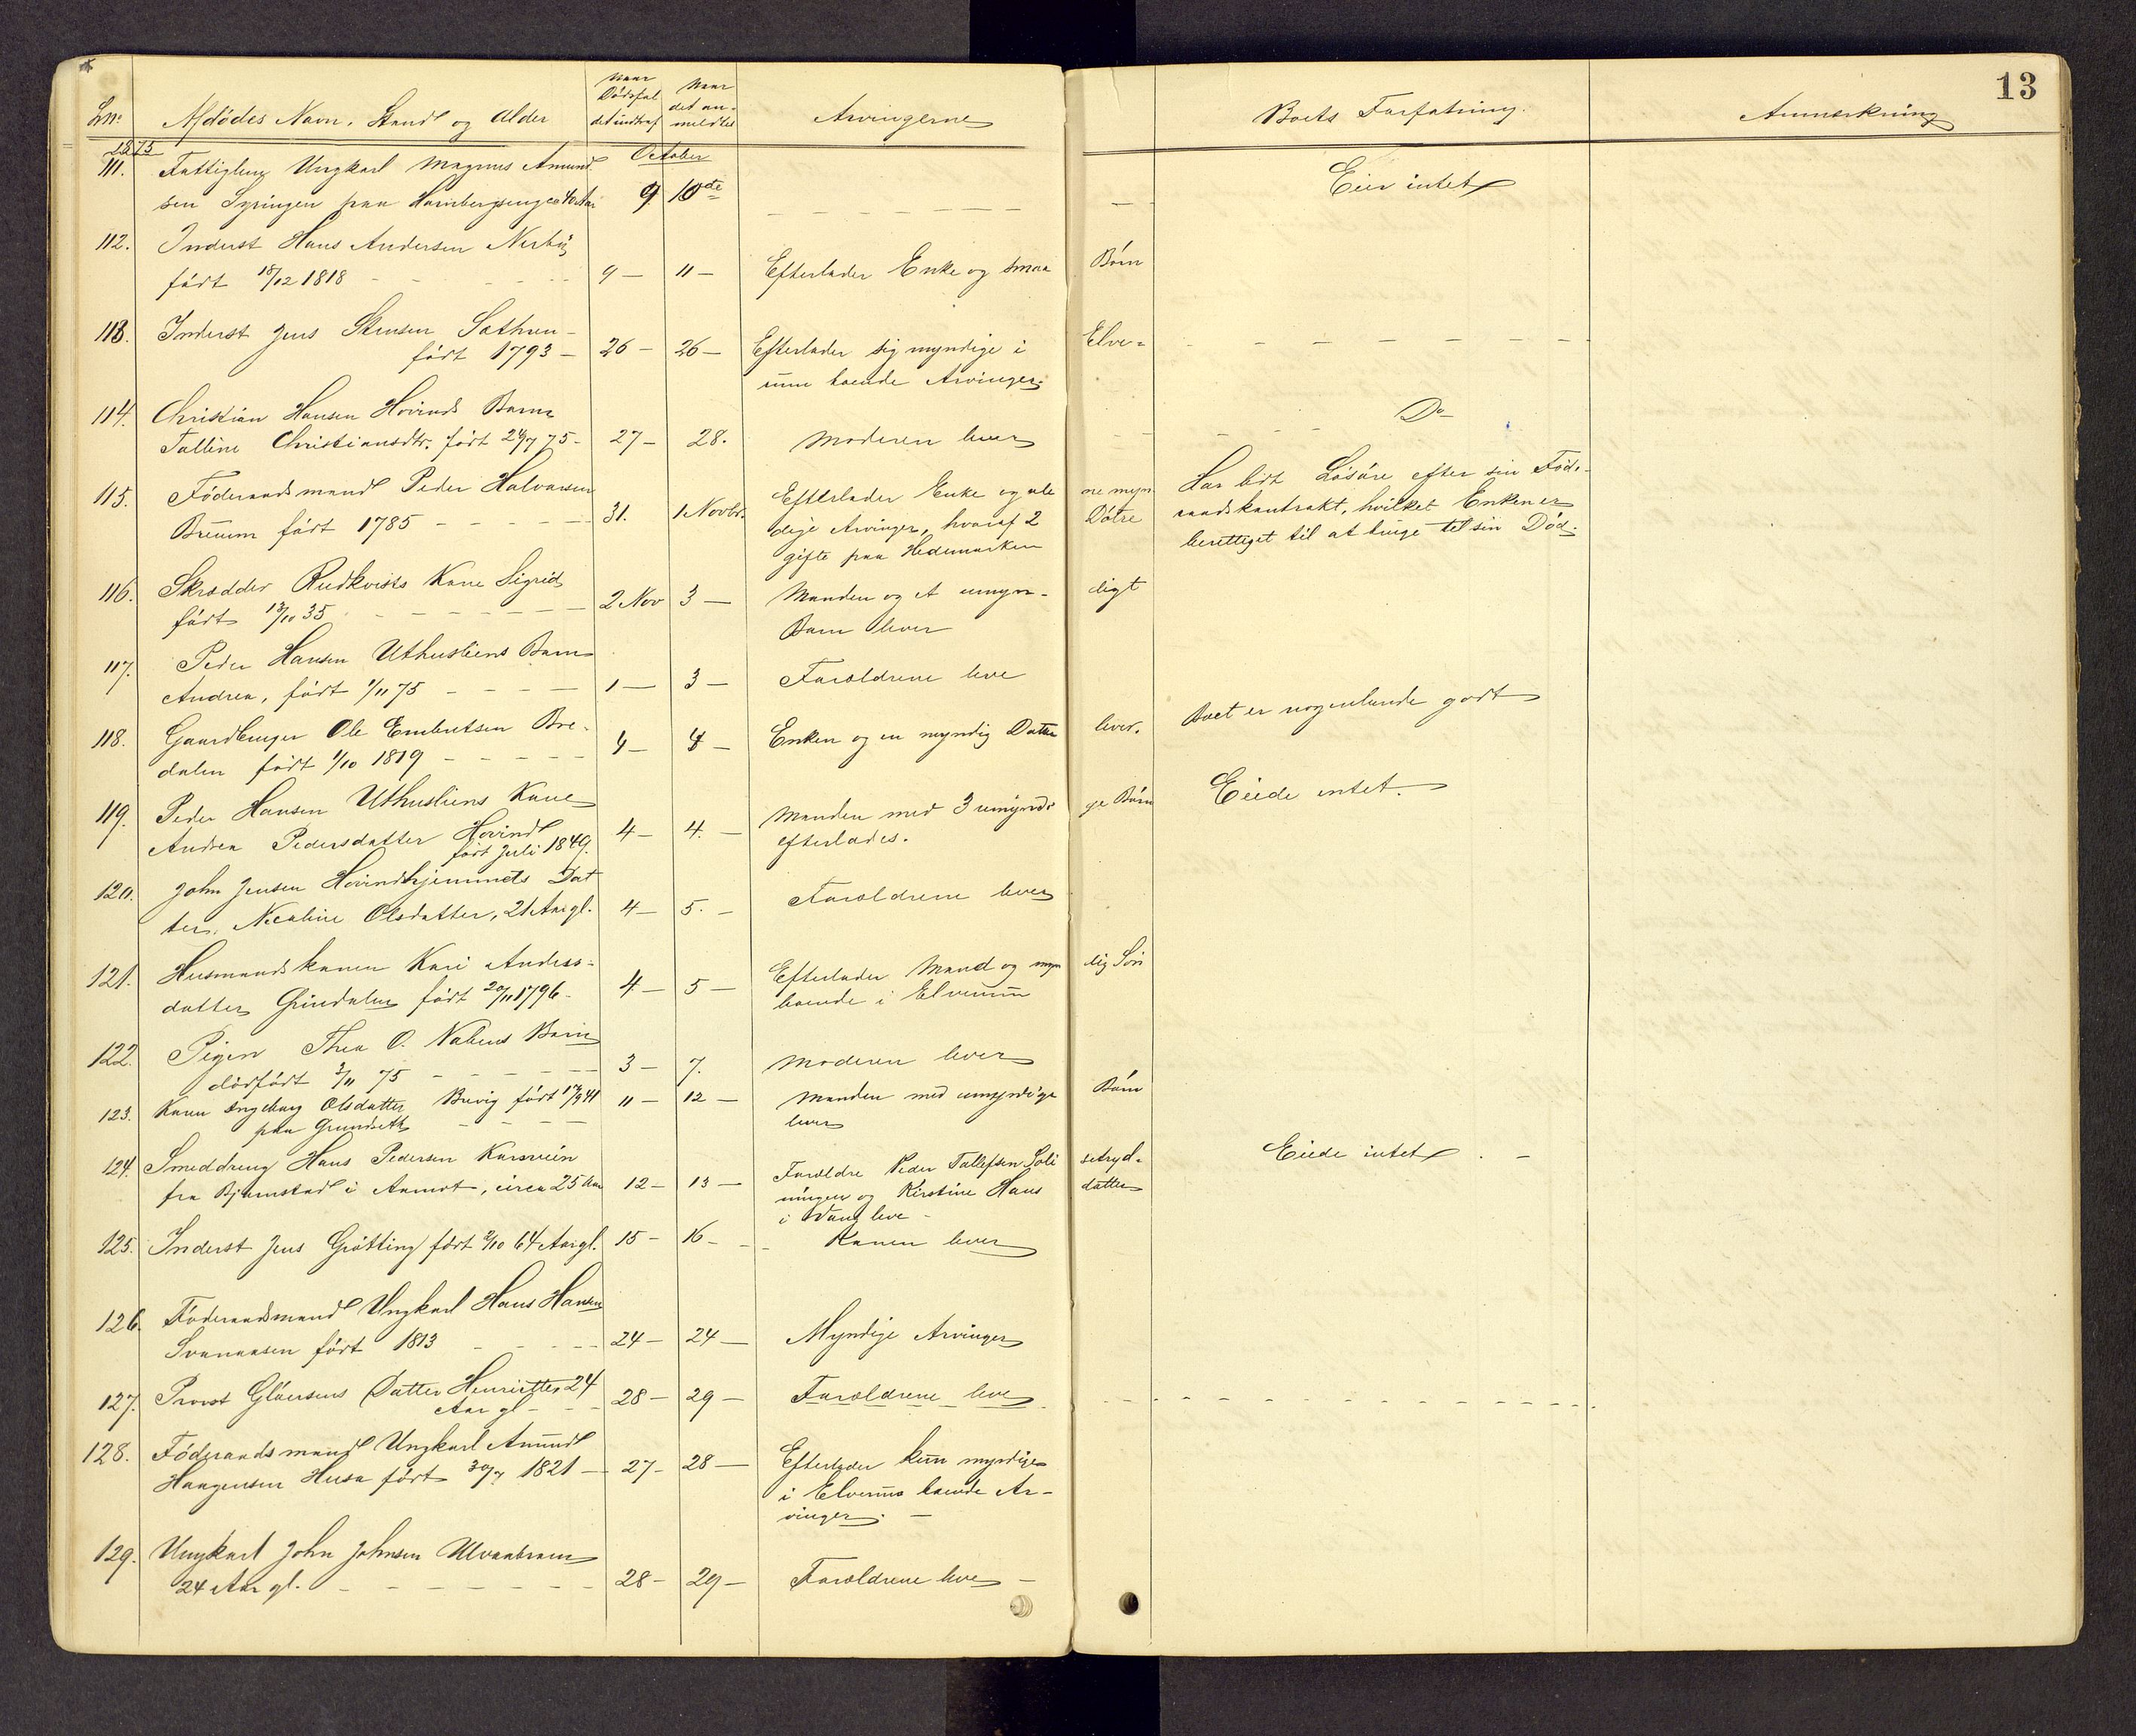 13
Lnº Afdödes Navn, Stand og Alder Naar Dödsfaldet indtraf Naar det anmeldtes Arvingerne Boets Forfatning. Anmærkning
1875 October
111. Fattiglem Ungkarl Magnus Amund- Eier intet
sen Syringen paa Hornbergseng ca 40 Aar 9 10de
112. Inderst Hans Andersen Nerby
født 18/12 1818 9 — 11 — Efterlader Enke og smaa Børn
113. Inderst Jens Stensen Sæthren -
født 1793 — 26 — 26 — Efterlader sig myndige i Elve-
rum boende Arvinger.
114. Christian Hansen Hovinds Barn Do
Talline Christiansdtr. født 24/7 75 - 27 — 28. Moderen lever
115. Föderaadsmand Peder Halvorsen Efterlader Enke og ale ne myn Har lidt Løsøre efter sin Föde-
Bruum født 1785 31. 1 Novbr. dige Arvinger, hvoraf 2 Døtre raadskontrakt, hvilket Enken er
gifte paa Hedemarken berettiget til at bruge til sin Død.
116. Skrædder Rudkvists Kone Sigrid
født 13/10 35 2 Nov 3 — Manden og et umyn- digt
Barn lever
117. Peder Hansen Uthusliens Barn
Andrea, født 1/11 75 1 — 3 — Forældrene leve
118. Gaardbruger Ole Embretsen Bre- Boet er nogenlunde godt
dalen født 1/10 1819 4 — 4 — Enken og en myndig Datter lever.
119. Peder Hansen Uthusliens Kone Eiede intet.
Andrea Pedersdatter Hovind 4 — 4. — Manden med 3 umyndi ge Børn
født Juli 1849. efterlades.
120. John Jensen Hovindhjemmets Dat
ter, Nicoline Olsdatter, 21 Aar gl. 4 — 5. — Forældrene lever
121. Husmandskonen Kari Anders-
datter Grindalen født 20/11 1796 - 4 — 5 — Efterlader Mand og myn dig Søn
boende i Elverum
122. Pigen Thea O. Nabens Barn
dödfödt 3/11 75 3 — 7. Moderen lever
123. Kone Ingeborg Olsdatter Buvig født 17/9 41 11 — 12 — Manden med umyndige Børn
paa Grundseth lever
124. Smeddreng Hans Pedersen Karsveien Eiede intet. —
fra Bjørnstad i Aamot, circa 25 Aar 12 — 13 — Forældre Peder Tollefsen Soli setryd-
ningen og Kirstine Hans datter
i Vang leve -
125. Inderst Jens Grøtting født 2/10 64 Aar gl. 15 — 16 — Konen lever
126. Föderaadsmand Ungkarl Hans Hansen
Svenaasen født 1813 24 — 24 — Myndige Arvinger
127. Provst Gløersens Datter Henriette 24
Aar gl - 28 — 29 — Forældrene leve
128. Föderaadsmand Ungkarl Amund
Haagensen Husa født 30/7 1821 — 27 — 28 — Efterlader kun myndige
i Elverum boende Ar-
vinger. —
129. Ungkarl John Johnsen Ulvaabroen
24 Aar gl. 28 — 29 — Forældrene leve —